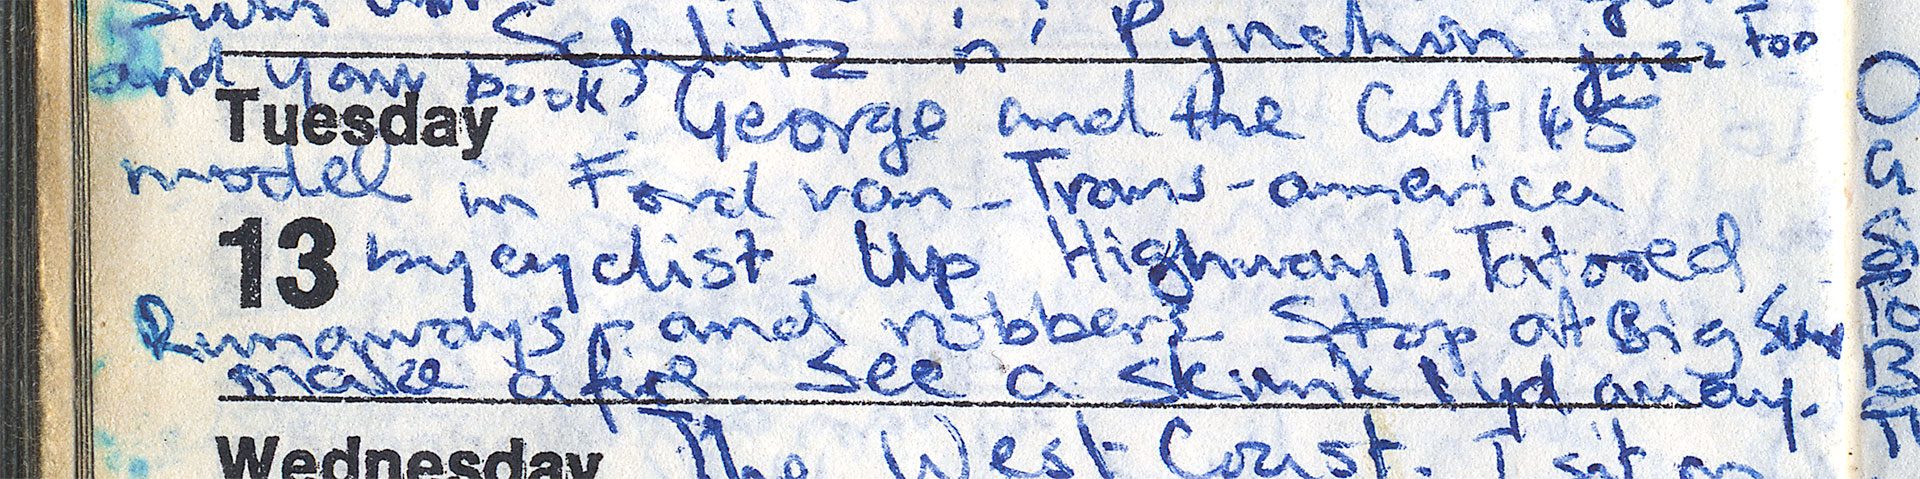 Schlitz 'n' Pynchon
Jazz too
and your book?
Tuesday
George and the Colt 45
model in Ford van - Trans-america
13
bycyclist - Up Highway 1 - Tatooed
Runaways and robbers. Stop at Big Sur
make a fire. See a skunk 1 yd away.
Wednesday
The West Coast. I sit on